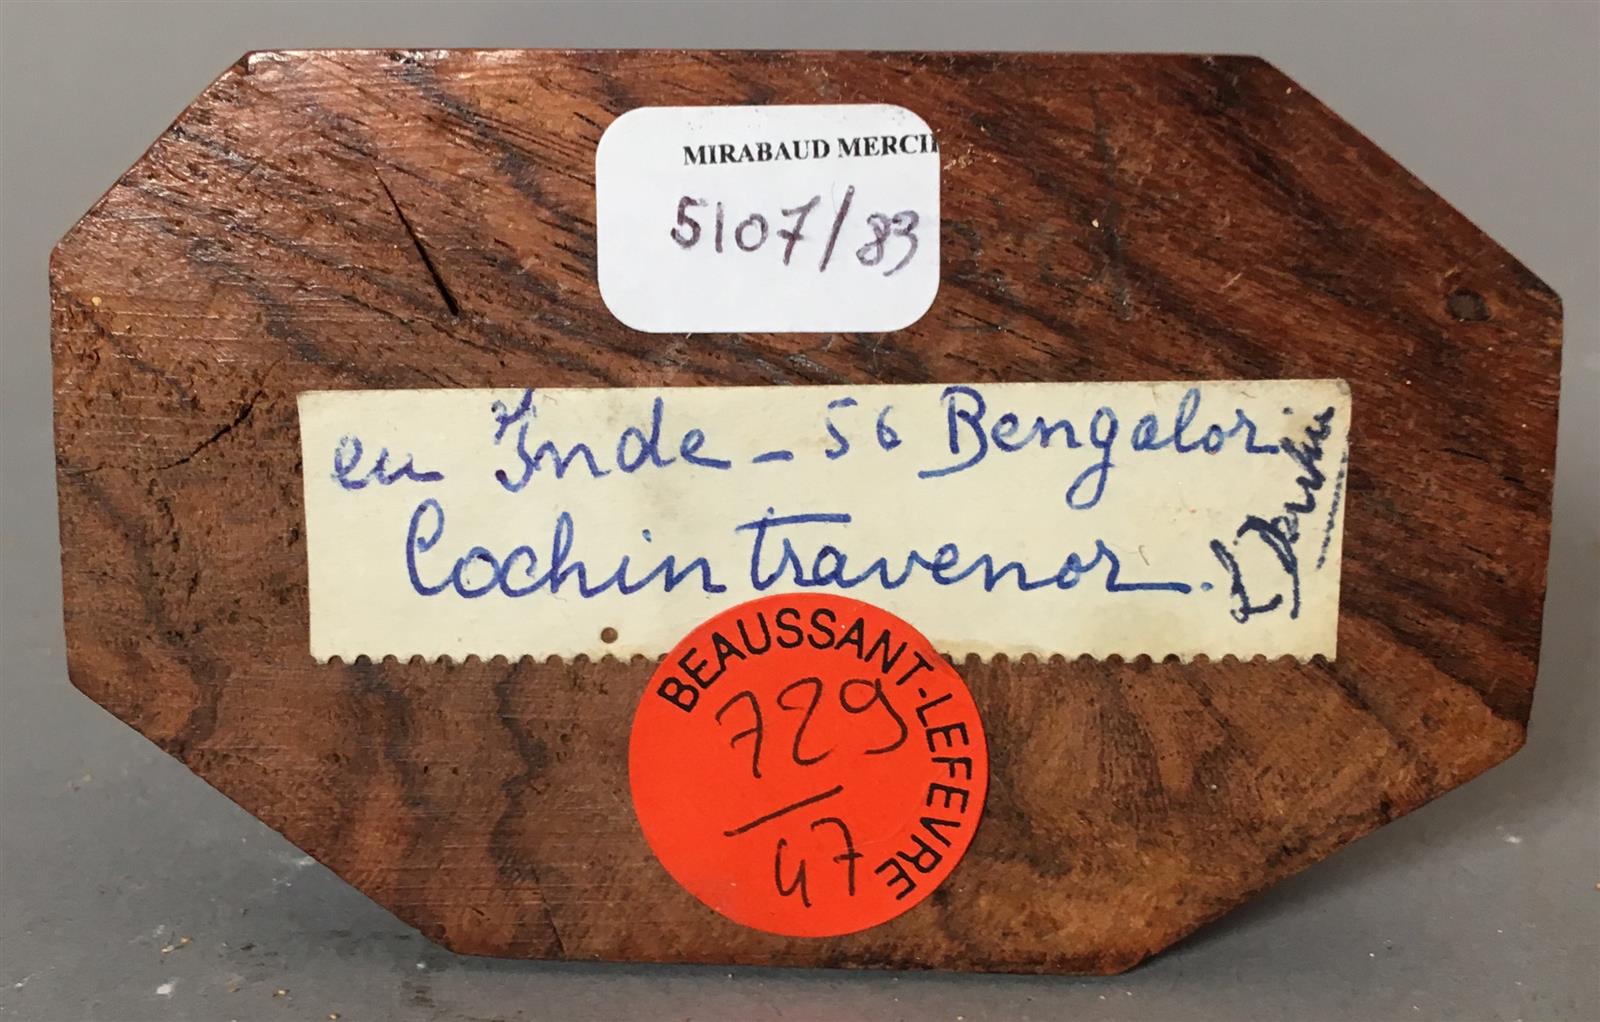 MIRABAUD MERCI
5107/83
en Inde - 56 Bengalor
Cochin Travenor.
BEAUSSANT-LEFEVRE
729
47